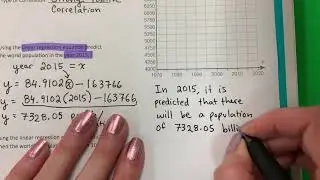 Correlation
using the linear regression equation predict
the world population in the year 2015.
year 2015 = x
y = 84.9102x - 163766
y = 84.9102(2015) - 163766
y = 7328.05
4800
4600
4400
4200
4000
1970 1980 1990 2000 2010 2020
In 2015, it is
predicted that there
will be a population
of 7328.05 billi
using the linear regression
when the world population